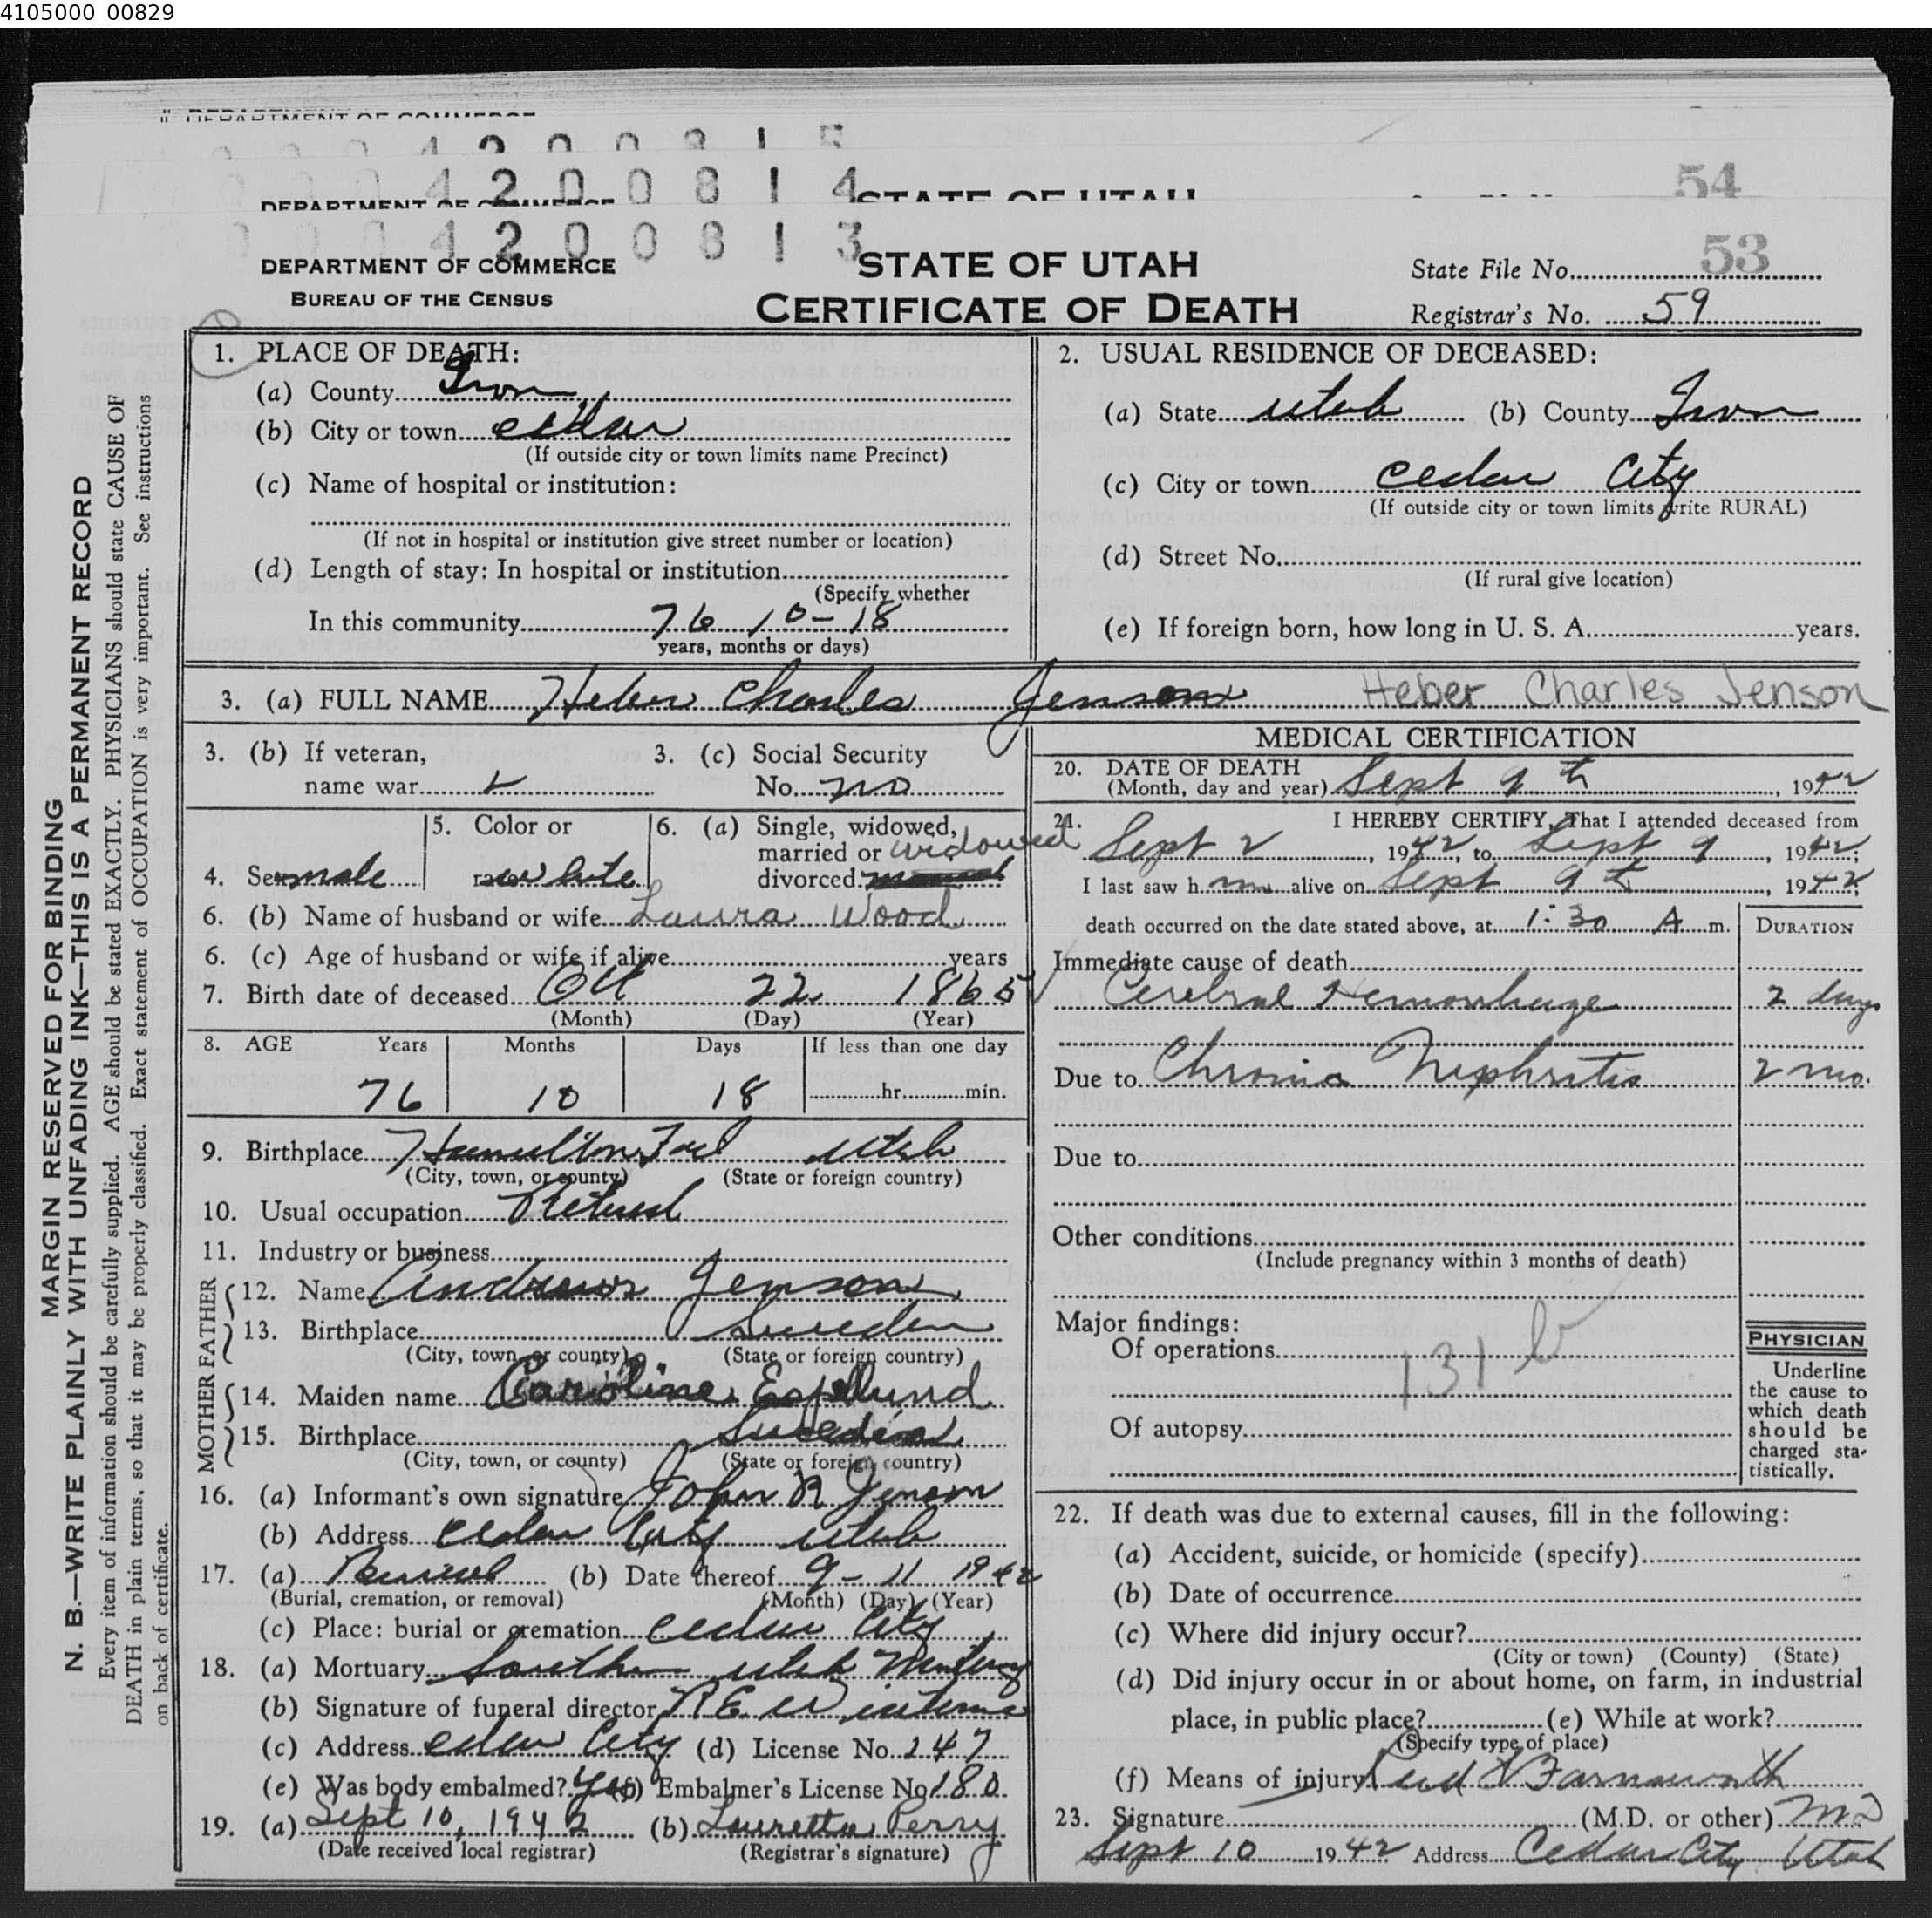 4105000_00829
DEPARTMENT OF COMMERCE
0 0 0 4 2 0 0 8 1 5
0 0 0 4 2 0 0 8 1 4
54
DEPARTMENT OF COMMERCE STATE OF UTAH
0 0 0 4 2 0 0 8 1 3
53
DEPARTMENT OF COMMERCE
BUREAU OF THE CENSUS
STATE OF UTAH
CERTIFICATE OF DEATH
State File No.
Registrar's No. 59
MARGIN RESERVED FOR BINDING
N. B.—WRITE PLAINLY WITH UNFADING INK—THIS IS A PERMANENT RECORD
Every item of information should be carefully supplied. AGE should be stated EXACTLY. PHYSICIANS should state CAUSE OF
DEATH in plain terms, so that it may be properly classified. Exact statement of OCCUPATION is very important. See instructions
on back of certificate.
1. PLACE OF DEATH:
(a) County Iron
(b) City or town cedar
(If outside city or town limits name Precinct)
(c) Name of hospital or institution:
(If not in hospital or institution give street number or location)
(d) Length of stay: In hospital or institution
(Specify whether
In this community 76 10-18
years, months or days)
2. USUAL RESIDENCE OF DECEASED:
(a) State Utah (b) County Iron
(c) City or town cedar City
(If outside city or town limits write RURAL)
(d) Street No.
(If rural give location)
(e) If foreign born, how long in U. S. A. years.
3. (a) FULL NAME Heber Charles Jenson Heber Charles Jenson
3. (b) If veteran,
name war
3. (c) Social Security
No. no
4. Sex male
5. Color or
race white
6. (a) Single, widowed,
married or widowed
divorced
6. (b) Name of husband or wife Laura Wood
6. (c) Age of husband or wife if alive years
7. Birth date of deceased Oct 22 1865
(Month) (Day) (Year)
8. AGE Years Months Days If less than one day
76 10 18 hr. min.
9. Birthplace Hamilton Fort Utah
(City, town, or county) (State or foreign country)
10. Usual occupation Retired
11. Industry or business
FATHER
12. Name Andrew Jenson
13. Birthplace Sweden
(City, town or county) (State or foreign country)
MOTHER
14. Maiden name Caroline Espelund
15. Birthplace Sweden
(City, town, or county) (State or foreign country)
16. (a) Informant's own signature John R Jenson
(b) Address cedar City Utah
17. (a) Burial (b) Date thereof 9-11 1942
(Burial, cremation, or removal) (Month) (Day) (Year)
(c) Place: burial or cremation cedar City
18. (a) Mortuary Southern Utah Mortuary
(b) Signature of funeral director
(c) Address cedar City (d) License No. 247
(e) Was body embalmed? yes (f) Embalmer's License No. 180
19. (a) Sept 10, 1942 (b) Lauretta Perry
(Date received local registrar) (Registrar's signature)
MEDICAL CERTIFICATION
20. DATE OF DEATH
(Month, day and year) Sept 9th, 1942
21. I HEREBY CERTIFY, That I attended deceased from
Sept 2, 1942, to Sept 9, 1942;
I last saw him alive on Sept 9th, 1942
death occurred on the date stated above, at 1:30 A m.
DURATION
Immediate cause of death
Cerebral Hemorrhage 2 days
Due to Chronic Nephritis 2 mo.
Due to
Other conditions
(Include pregnancy within 3 months of death)
Major findings:
Of operations
131 b
Of autopsy
PHYSICIAN
Underline
the cause to
which death
should be
charged sta-
tistically.
22. If death was due to external causes, fill in the following:
(a) Accident, suicide, or homicide (specify)
(b) Date of occurrence
(c) Where did injury occur?
(City or town) (County) (State)
(d) Did injury occur in or about home, on farm, in industrial
place, in public place? (e) While at work?
(Specify type of place)
(f) Means of injury
23. Signature Farnsworth (M.D. or other) MD
Sept 10 1942 Address Cedar City Utah